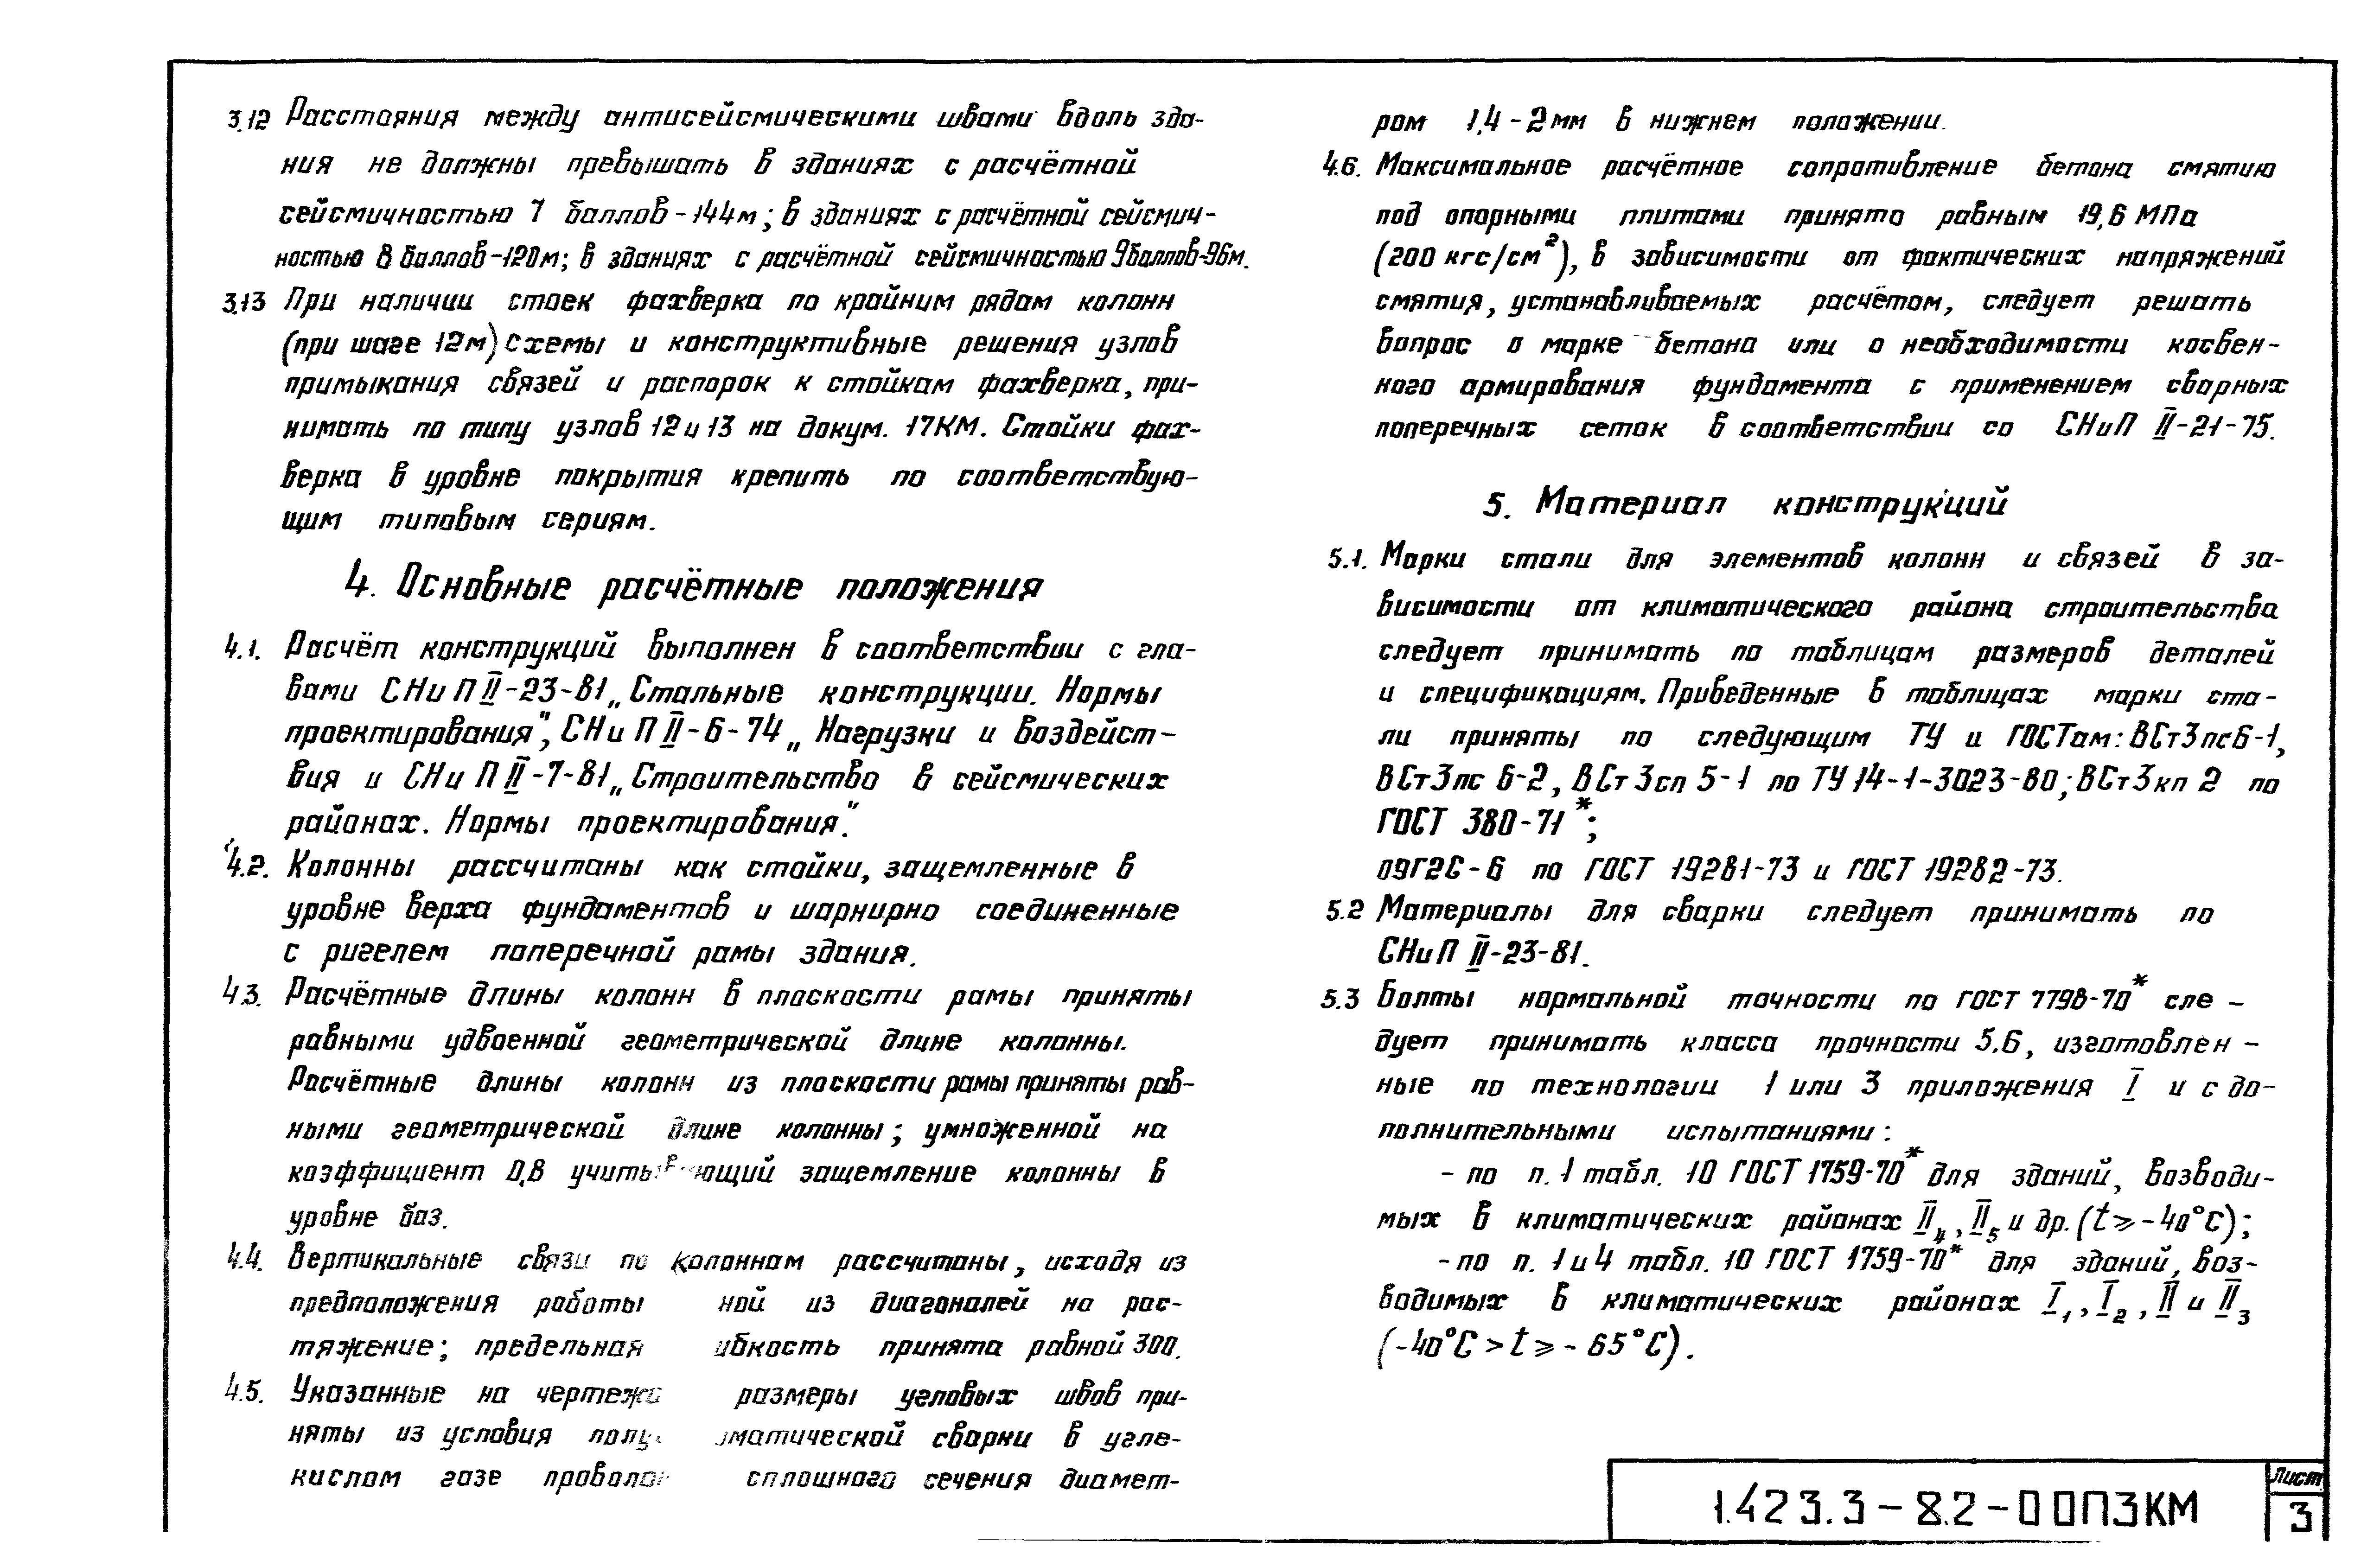 3.12 Расстояния между антисейсмическими швами вдоль зда-
ния не должны превышать в зданиях с расчётной
сейсмичностью 7 баллов-144м; в зданиях с расчётной сейсмич-
ностью 8 баллов-120м; в зданиях с расчётной сейсмичностью 9баллов-96м.
3.13 При наличии стоек фахверка по крайним рядам колонн
(при шаге 12м) схемы и конструктивные решения узлов
примыкания связей и распорок к стойкам фахверка, при-
нимать по типу узлов 12 и 13 на докум. 17КМ. Стойки фах-
верка в уровне покрытия крепить по соответствую-
щим типовым сериям.
4. Основные расчётные положения
4.1. Расчёт конструкций выполнен в соответствии с гла-
вами СНиП II-23-81 „Стальные конструкции. Нормы
проектирования", СНиП II-6-74 „Нагрузки и воздейст-
вия и СНиП II-7-81 „Строительство в сейсмических
районах. Нормы проектирования."
4.2. Колонны рассчитаны как стойки, защемленные в
уровне верха фундаментов и шарнирно соединенные
с ригелем поперечной рамы здания.
4.3. Расчётные длины колонн в плоскости рамы приняты
равными удвоенной геометрической длине колонны.
Расчётные длины колонн из плоскости рамы приняты рав-
ными геометрической длине колонны; умноженной на
коэффициент 0,8 учитывающий защемление колонны в
уровне баз.
4.4. Вертикальные связи по колоннам рассчитаны, исходя из
предположения работы ной из диагоналей на рас-
тяжение; предельная ибкость принята равной 300.
4.5. Указанные на размеры угловых швов при-
няты из условия сварки в угле-
кислом газе сплошного сечения диамет-
ром 1,4-2мм в нижнем положении.
4.6. Максимальное расчётное сопротивление бетона смятию
под опорными плитами принято равным 19,6 МПа
(200 кгс/см²), в зависимости от фактических напряжений
смятия, устанавливаемых расчётом, следует решать
вопрос о марке бетона или о необходимости косвен-
ного армирования фундамента с применением сварных
поперечных сеток в соответствии со СНиП II-21-75.
5. Материал конструкций
5.1. Марки стали для элементов колонн и связей в за-
висимости от климатического района строительства
следует принимать по таблицам размеров деталей
и спецификациям. Приведенные в таблицах марки ста-
ли приняты по следующим ТУ и ГОСТам: ВСт3пс6-1,
ВСт3пс 6-2, ВСт3сп 5-1 по ТУ14-1-3023-80; ВСт3кп 2 по
ГОСТ 380-71*;
09Г2С-6 по ГОСТ 19281-73 и ГОСТ 19282-73.
5.2 Материалы для сварки следует принимать по
СНиП II-23-81.
5.3 Болты нормальной точности по ГОСТ 7798-70* сле-
дует принимать класса прочности 5.6, изготовлен-
ные по технологии 1 или 3 приложения I и с до-
полнительными испытаниями:
- по п. 1 табл. 10 ГОСТ 1759-70* для зданий, возводи-
мых в климатических районах II₄, II₅ и др. (t ⩾ -40°С);
- по п. 1 и 4 табл. 10 ГОСТ 1759-70* для зданий, воз-
водимых в климатических районах I₁, I₂, II и II₃
(-40°С > t ⩾ - 65°С).
1.423.3-8.2-00ПЗКМ
Лист
3